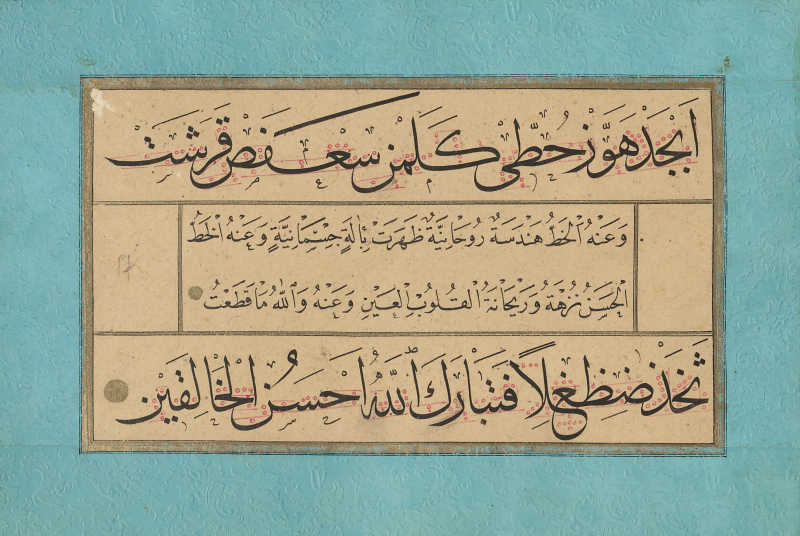 اَبْجَدْ هَوَّزْ حُطِّى كَلَمَنْ سَعْفَصْ قَرَشَتْ
وَعَنْهُ الْخَطُّ هَنْدَسَةٌ رُوْحَانِيَّةٌ ظَهَرَتْ بِاٰلَةٍ جِسْمَانِيَّةٍ وَعَنْهُ الْخَطُّ
الْحَسَنُ نُزْهَةُ وَرَيْحَانَةُ الْقُلُوبِ الْعَيْنِ وَعَنْهُ وَاللّٰهُ مَا قَطَعْتُ
ثَخَذْ ضَظَغٍ لًا فَتَبَارَكَ اللّٰهُ اَحْسَنُ الْخَالِقِيْنَ